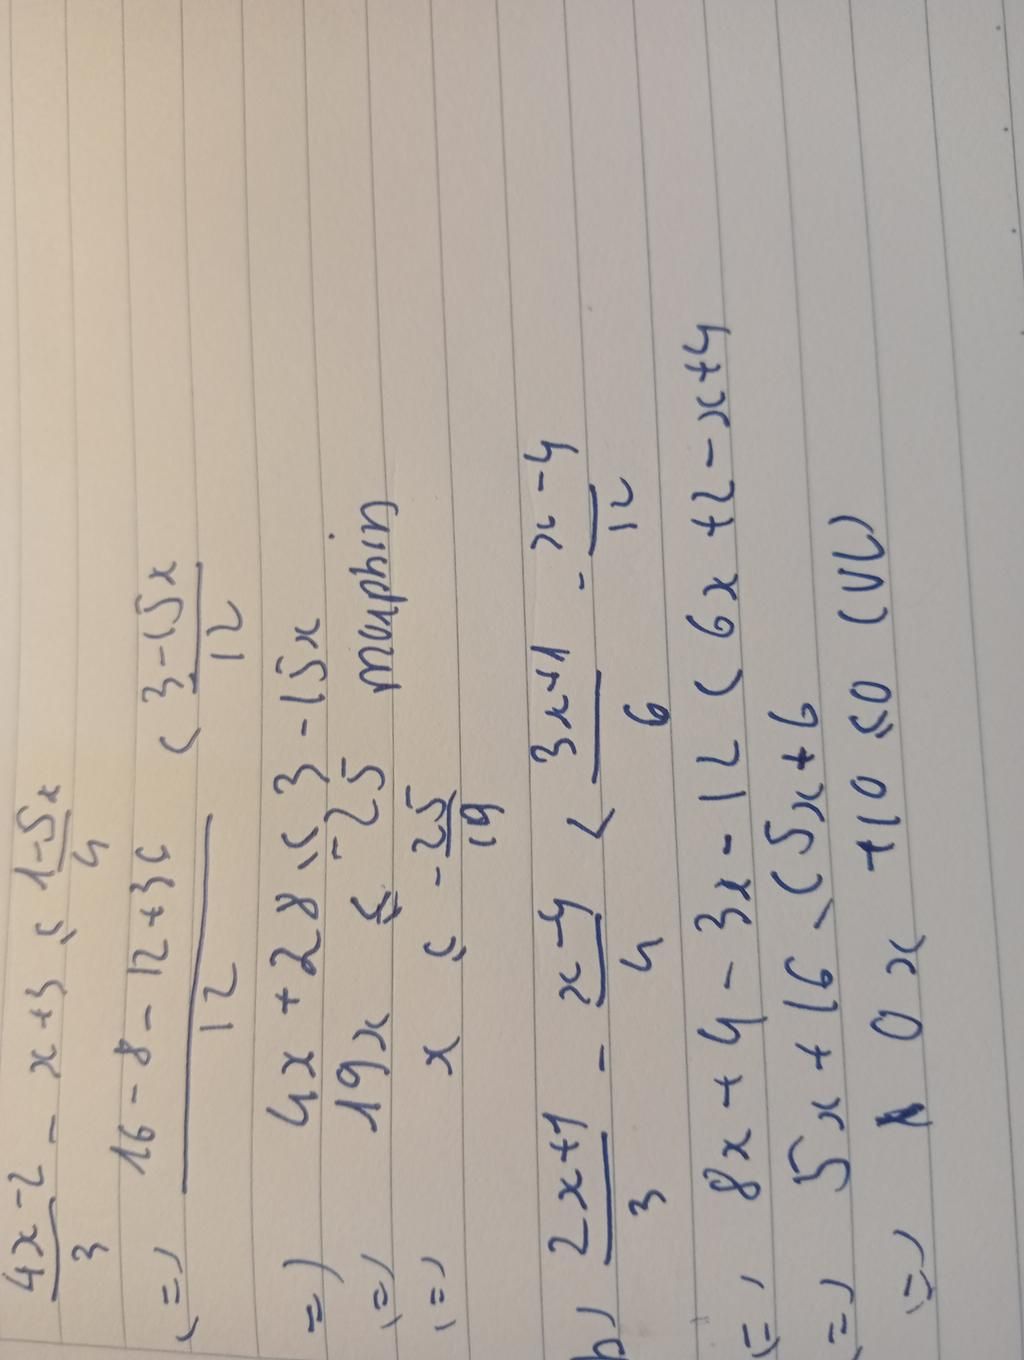 4x-2/3 - x+3 ≤ 1-5x/4
(=) 16-8-12+3c/12 ( 3-15x/12
=) 4x+28 ≤ 3-15x
(=) 19x ≤ -25 mauphin
(=) x ≤ -25/19
b, 2x+1/3 - x-4/4 < 3x+1/6 - x-4/12
(=) 8x+4-3x-12 ( 6x+2-x+4
(=) 5x+16 ( 5x+6
(=) 0x +10 ≤0 (VL)